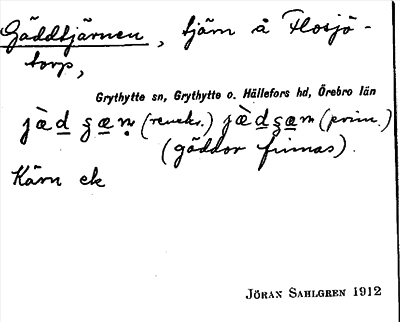 Gäddtjärnen, tjärn å Flosjö-
torp,
Grythytte sn, Grythytte o. Hällefors hd, Örebro län
(gäddor finnas).
Kärn ek
JÖRAN SAHLGREN 1912